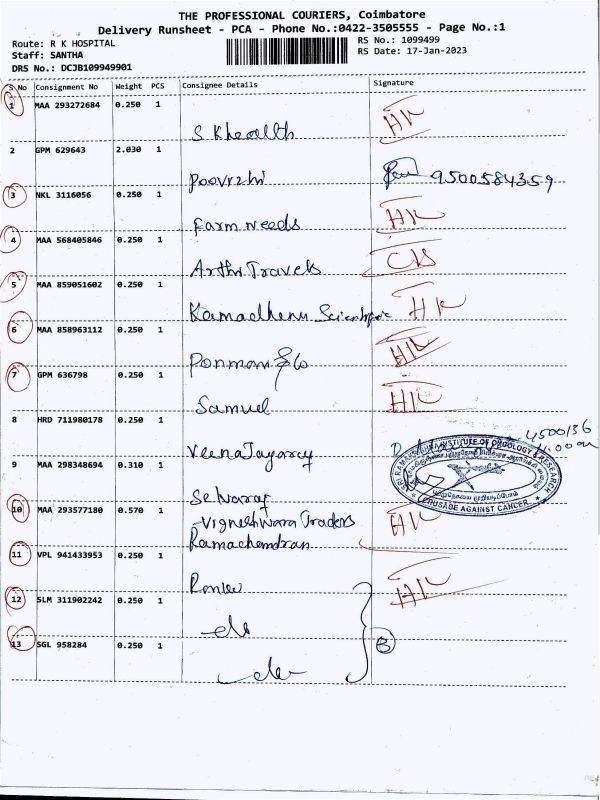 THE PROFESSIONAL COURIERS, Coimbatore
Delivery Runsheet - PCA - Phone No.:0422-3505555 - Page No.:1
Route: R K HOSPITAL
RS No.: 1099499
Staff: SANTHA
RS Date: 17-Jan-2023
DRS No.: DCJB109949901
S No Consignment No Weight PCS Consignee Details Signature
1 MAA 293272684 0.250 1
HK
2 GPM 629643 2.030 1
Poovrzhi 9500584359
3 NKL 3116056 0.250 1
Farm needs HK
4 MAA 568405846 0.250 1
Arthi Travels
5 MAA 859051602 0.250 1
Kamadhenu Scientific HK
6 MAA 858963112 0.250 1
Ponmani & Co HK
7 GPM 636798 0.250 1
Samuel HK
8 HRD 711980178 0.250 1
4500136
Veena Jayaraj
SRI RAMAKRISHNA INSTITUTE OF ONCOLOGY & RESEARCH
CRUSADE AGAINST CANCER
9 MAA 298348694 0.310 1
Selvaraj
10 MAA 293577180 0.570 1
Vigneshwara Traders HK
Ramachandran
11 VPL 941433953 0.250 1
HK
12 SLM 311902242 0.250 1
13 SGL 958284 0.250 1